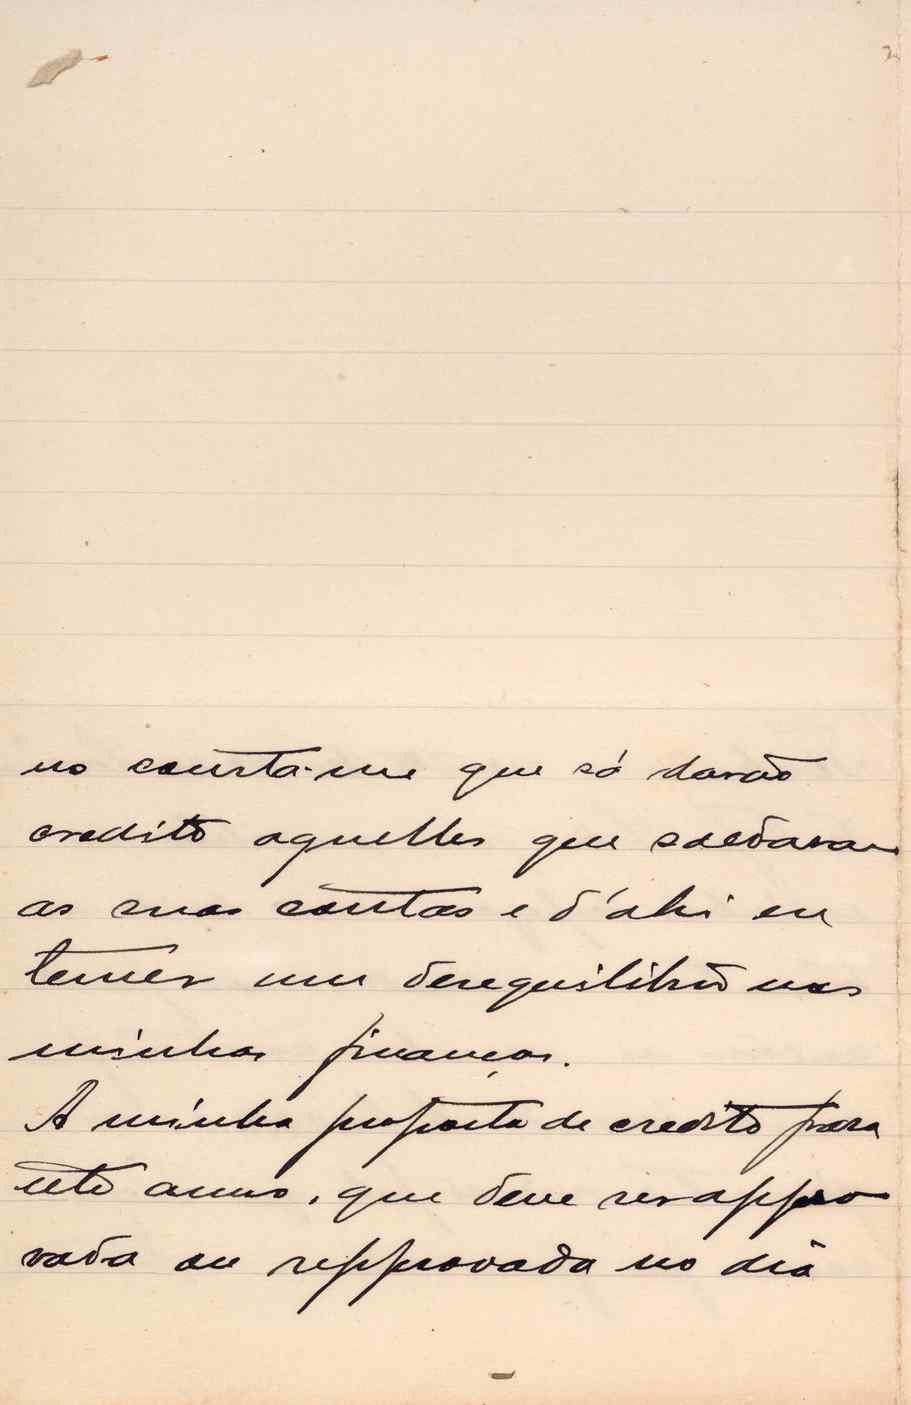 no consta-me que só darão
credito aquelles que saldaram
as suas contas e d'ahi eu
temer um desequilibrio nas
minhas finanças.
A minha proposta de credito para
este anno, que deve ser appro
vada ou repprovada no dia